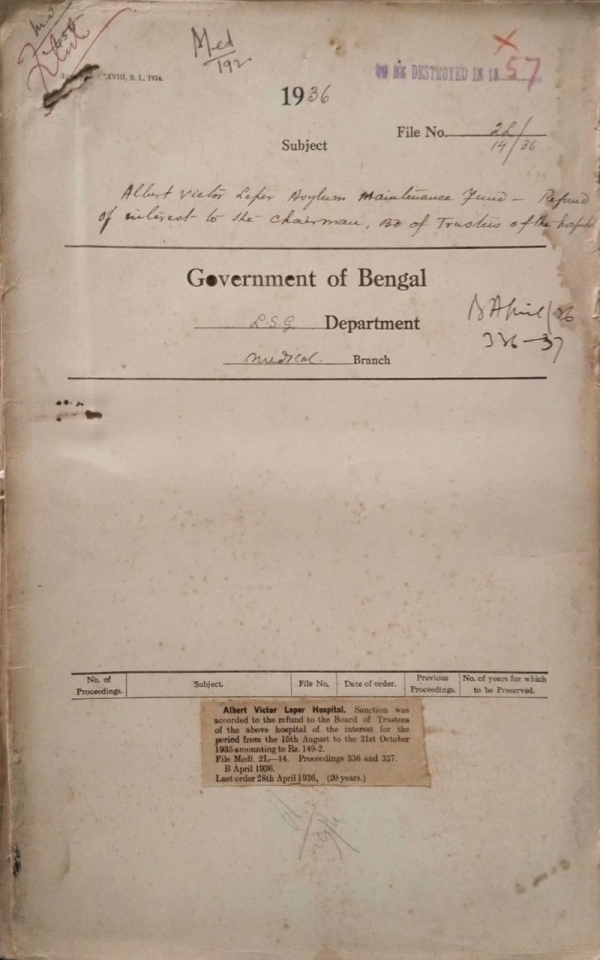 Med
192
XVIII, S. I., 1924.
TO BE DESTROYED IN 19 57
1936
File No. 2L/14/36
Subject
Albert Victor Leper Asylum Maintenance Fund – Refund
of interest to the Chairman, Bd of Trustees of the hospital
Government of Bengal
L.S.G. Department
B April/36
336-37
Medical Branch
No. of Proceedings. Subject. File No. Date of order. Previous Proceedings. No. of years for which to be Preserved.
Albert Victor Leper Hospital. Sanction was
accorded to the refund to the Board of Trustees
of the above hospital of the interest for the
period from the 15th August to the 31st October
1935 amounting to Rs. 149-2.
File Medl. 2L—14. Proceedings 336 and 337.
B April 1936.
Last order 28th April 1936, (20 years.)